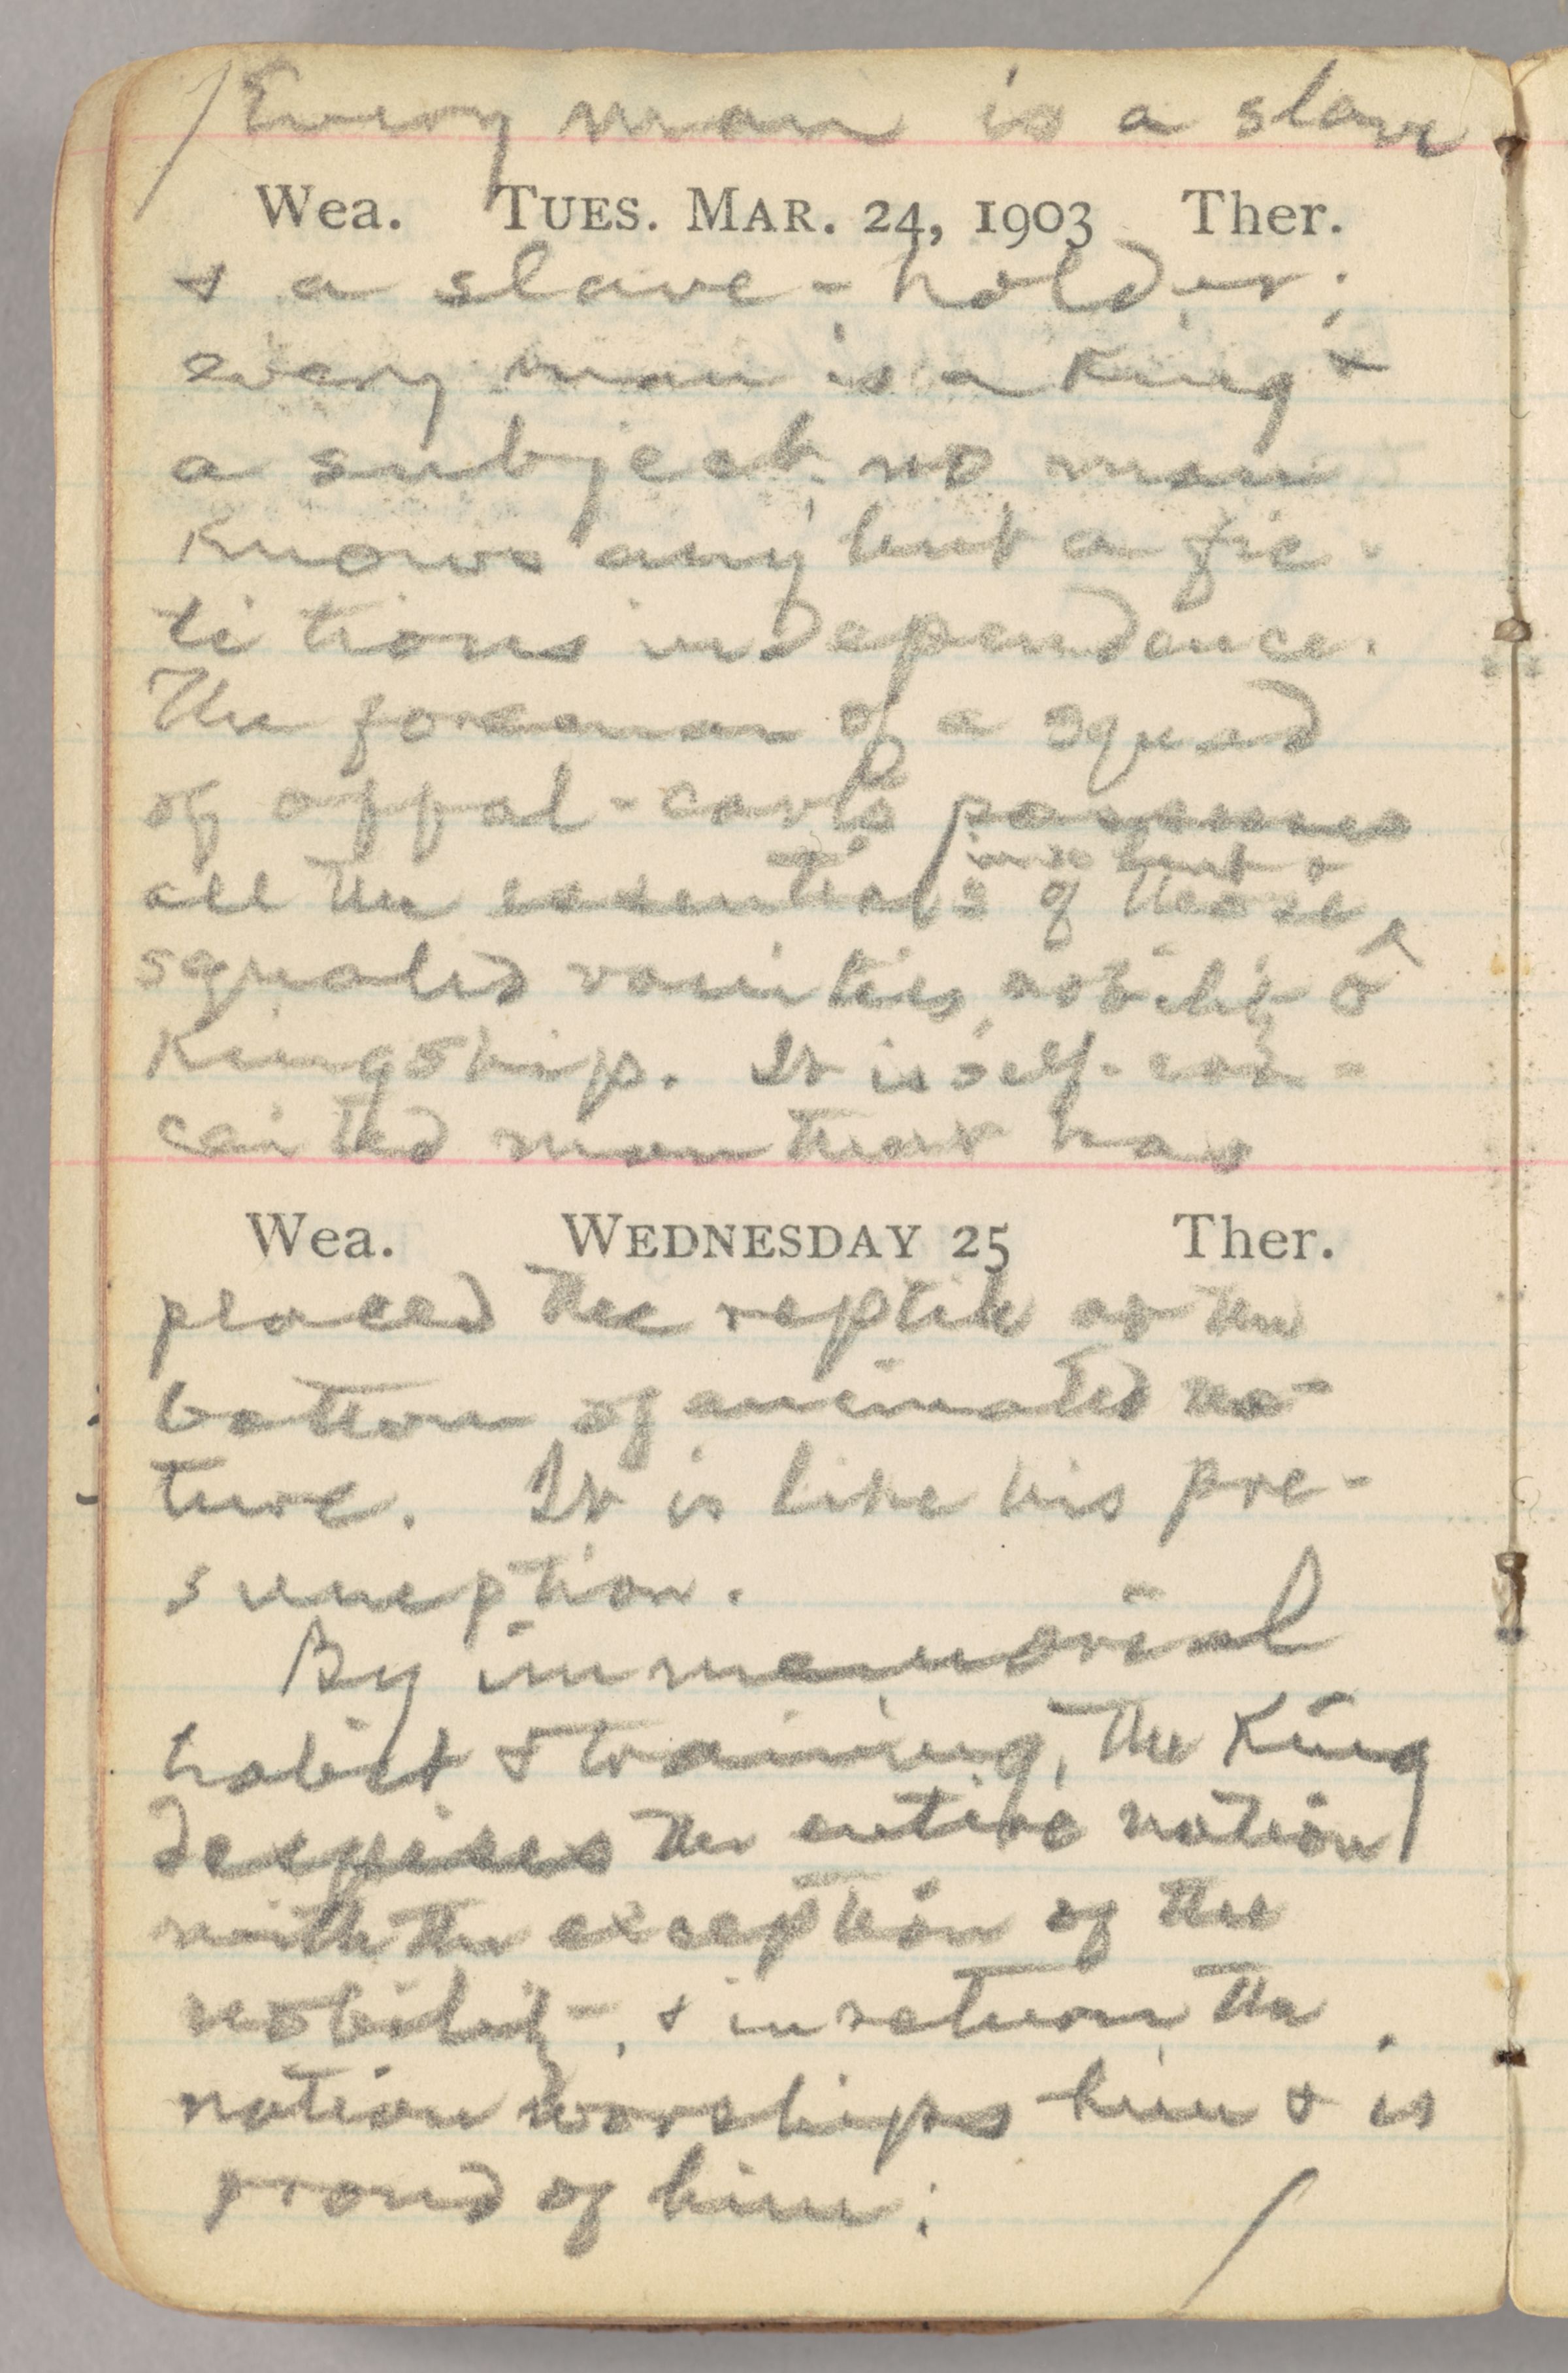 /Every man is a slave
Wea. TUES. MAR. 24, 1903 Ther.
& a slave-holder;
every man is a king &
a subject; no man
knows any but a fic-
titious independence.
The foreman of a squad
of offal-carts possesses
all the essentials of those
squalid vanities, nobility &
Kingship. It is self-con-
ceited man that has
Wea. WEDNESDAY 25 Ther.
placed the reptile at the
bottom of animated na-
ture. It is like his pre-
sumption.
By immemorial
habit & training, the King
despises the entire nation
with the exception of the
nobility-, & in return the
nation worships him & is
proud of him.
/